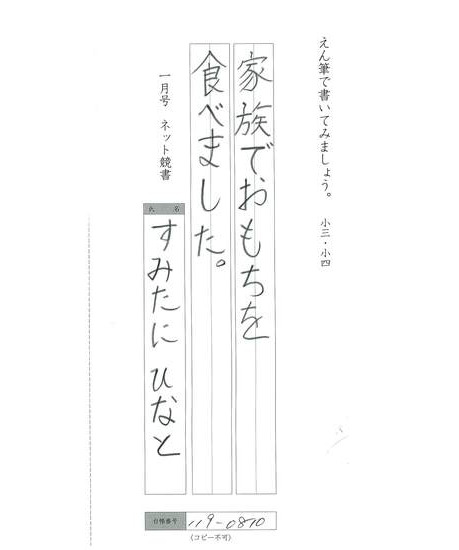 えん筆で書いてみましょう。 小三・小四
家族でおもちを
食べました。
一月号 ネット競書
氏 名
すみたに ひなと
台帳番号 119-0870
(コピー不可)